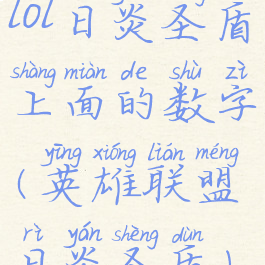 lol日炎圣盾
shàng miàn de shù zì
上面的数字
yīng xióng lián méng
(英雄联盟
rì yán shèng dùn
日炎圣盾)